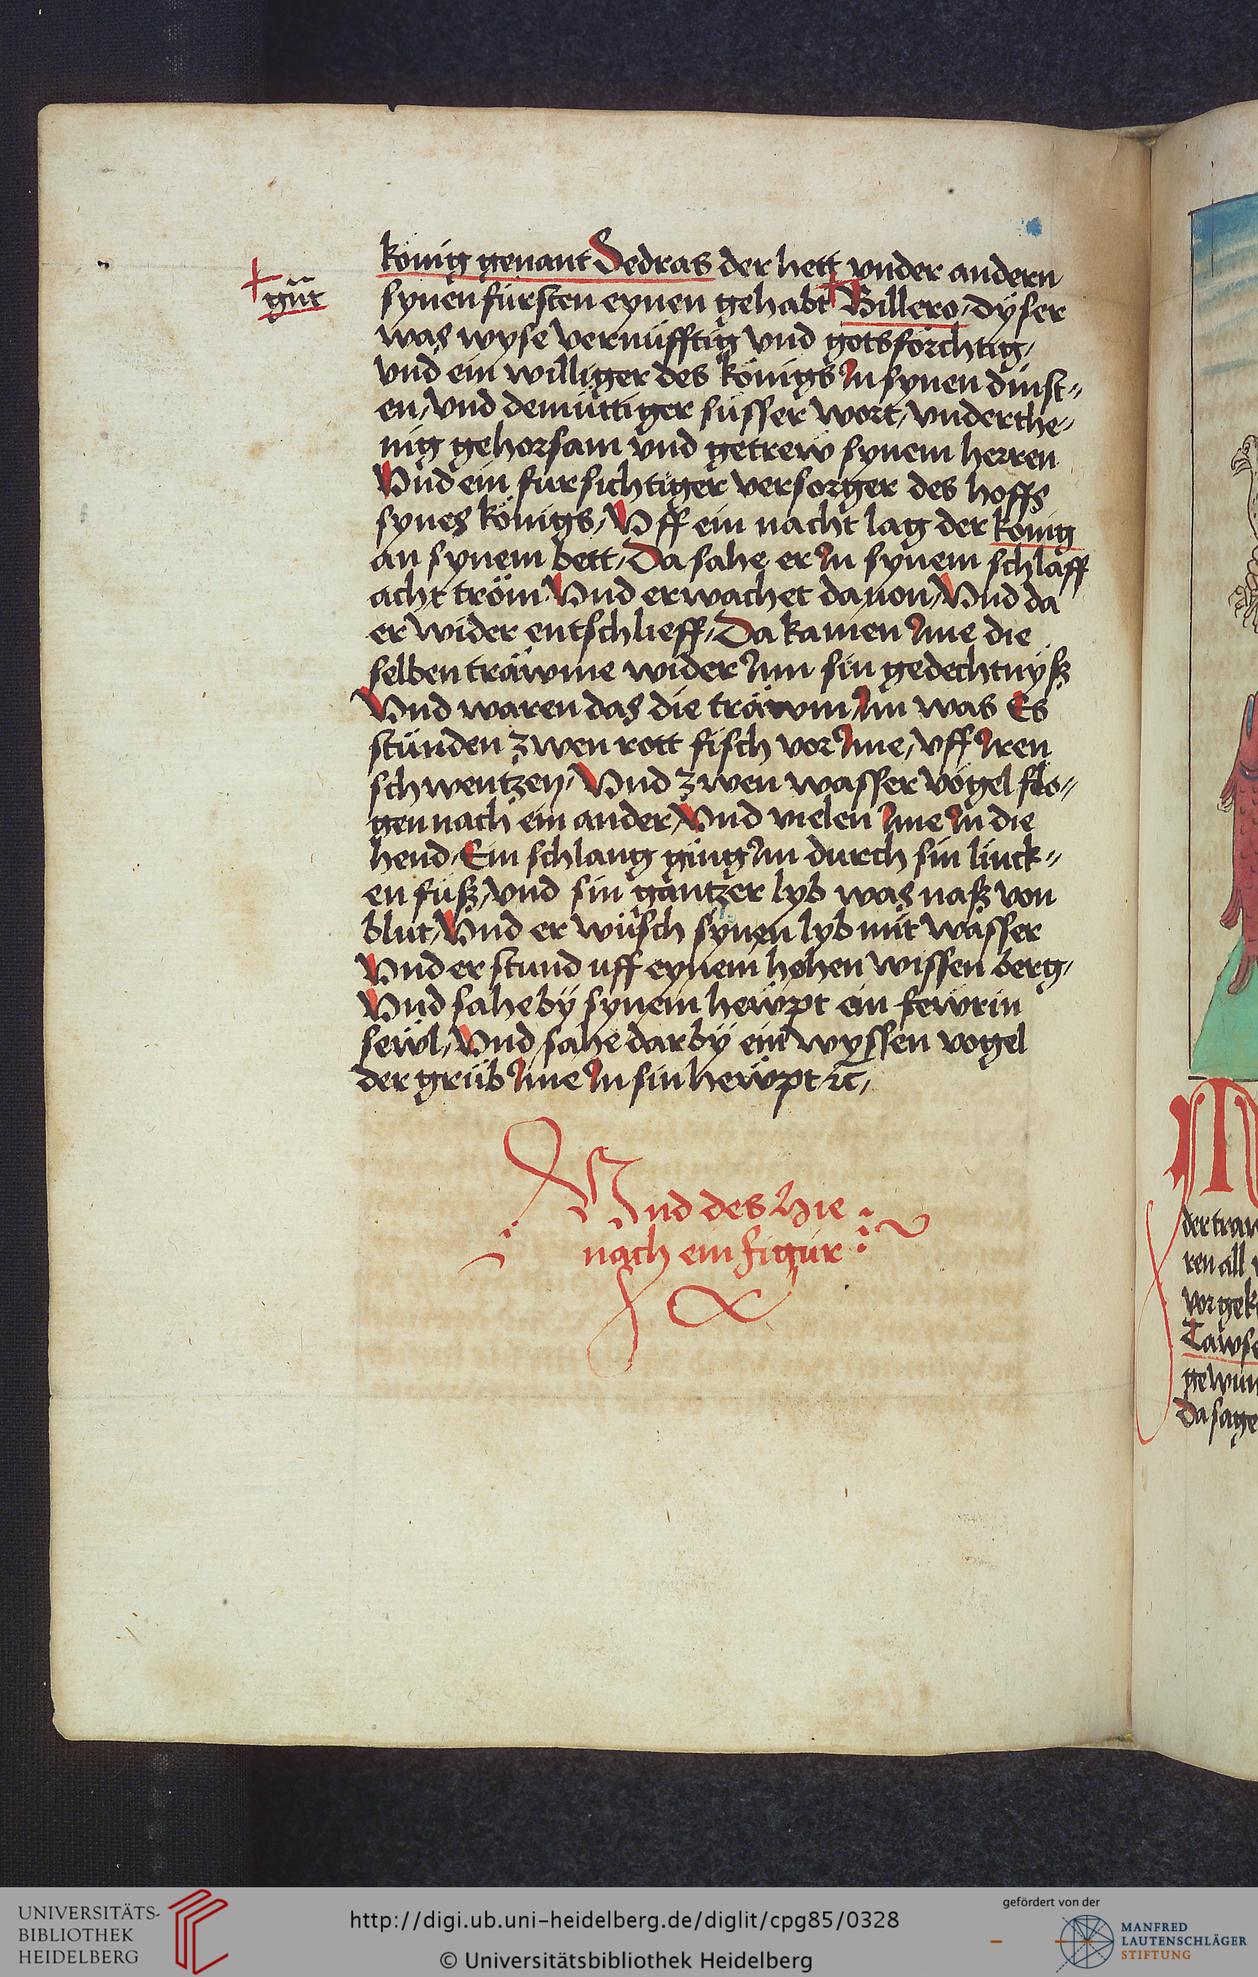 gůt
könig genant Sedras der hett vnder andern
synen fürsten eynen gehabt Billero / dÿser
was wyse vernúfftig vnd gotsförchtig /
vnd ein williger des königs In synen dinst-
en / vnd demüttiger süsser wort / vnderthe-
nig gehorsam vnd getrew synem herren
Vnd ein fúrsichtiger versorger des hoffs
synes königs / Vff ein nacht lag der könig
an synem bett / Da sahe er In synem schlaff
acht tröm Vnd erwachet dauon / Vnd da
er wider entschlieff / Da kamen Ime die
selben träwme wider Inn sin gedechtnyß
Vnd waren das die träwm / Im was Es
stúnden zwen rott fisch vor Ime / vff Iren
schwentzen / Vnd zwen wasser vögel flo-
gen nach ein ander / Vnd vielen Ime In die
hend / Ein schlang ging Im durch sin linck-
en fůß / vnd sin gantzer lyb was naß von
blut / Vnd er wůsch synen lyb mit wasser
Vnd er stund uff eynem hohen wissen berg /
Vnd sahe bÿ synem hewpt ein fewrin
sewl / Vnd sahe darbÿ ein wyssen vogel
der grůb Ime In sin hewpt ꝛc /
Vnd des hie
nach ein figúr
der traw
ren all
vor gek
Tawse
gewun
Da sage
UNIVERSITÄTS-
BIBLIOTHEK
HEIDELBERG
http://digi.ub.uni-heidelberg.de/diglit/cpg85/0328
© Universitätsbibliothek Heidelberg
gefördert von der
MANFRED
LAUTENSCHLÄGER
STIFTUNG